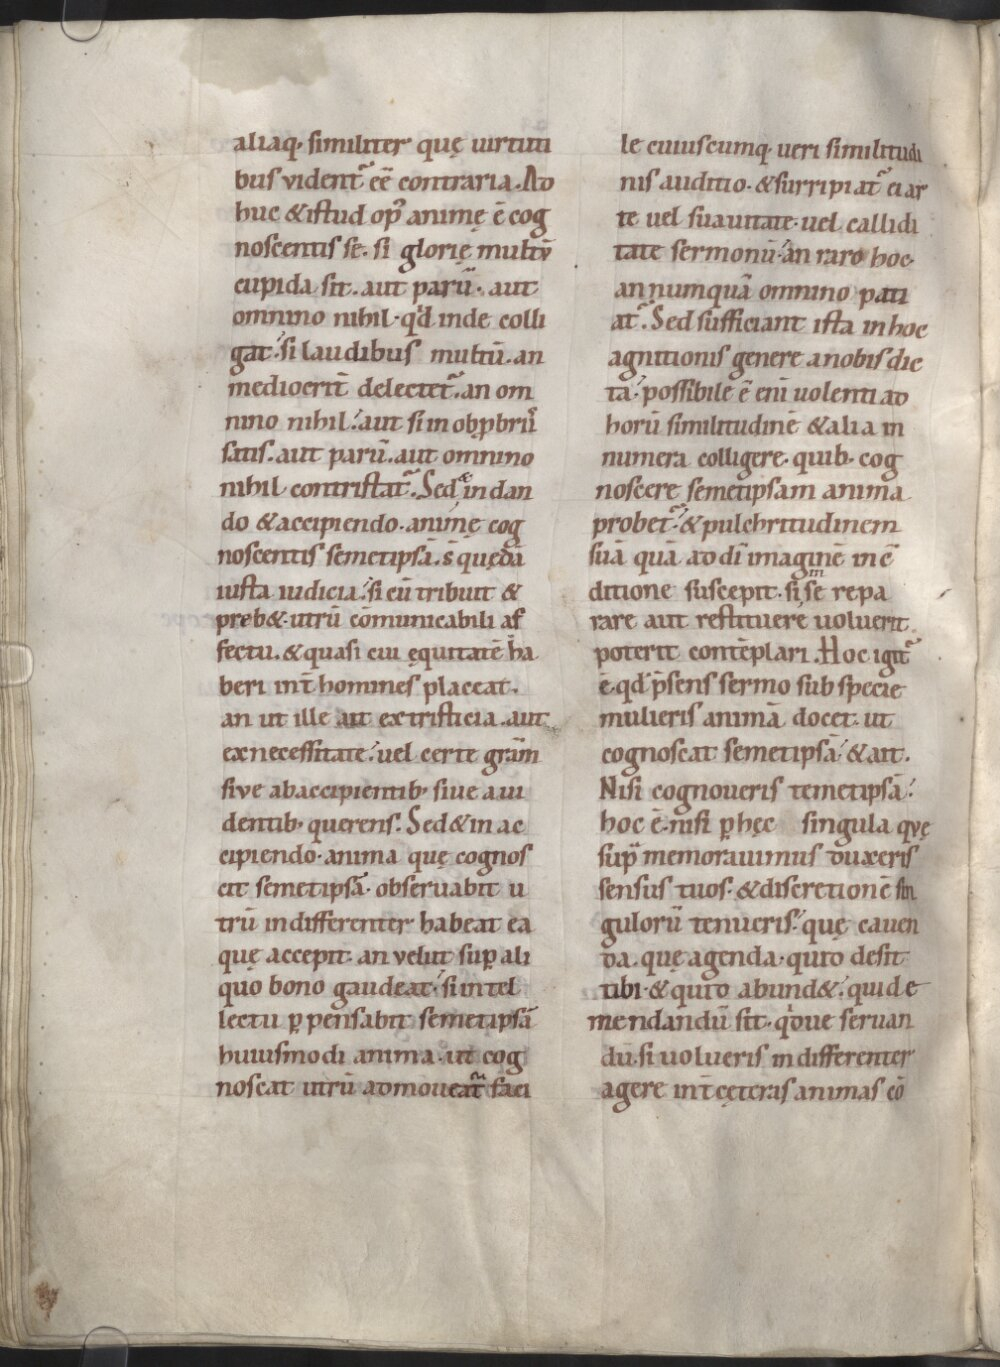 aliaq· similiter quę uirtuti
bus vident᷑ eē contraria. Ad
huc & istud op᷑ animę ē cog
noscentis se. si glorię multū
cupida sit. aut parū. aut
omnino nihil. qđ inde colli
gat. si laudibus multū. an
mediocrit̄ delectet᷑. an om
nino nihil. aut si in obpbriis
satis. aut parū. aut omnino
nihil contristat᷑. Sed & in dan
do & accipiendo. animę cog
noscentis semetipsā. s̄ quędā
iusta iudicia. si eū tribuit &
preb&. utrū cōmunicabili af
fectu. & quasi cui ęquitatē ha
beri int̄ homines placeat.
an ut ille ait ex tristicia. aut
ex necessitate. uel certe gr̄am
sive ab accipientib· siue aui
dentib· querens. Sed & in ac
cipiendo. anima quę cognos
cit semetipsā. obseruabit u
trū indifferenter habeat ea
quę accepit. an velut sup ali
quo bono gaudeat. si intel
lectu p pensabit semetipsā
huiusmodi anima. ut cog
noscat utrū admoueat᷑ faci
le cuiuscumq· ueri similitudi
nis auditio. & surripiat᷑ ei ar
te uel suauitate. uel callidi
tate sermonū. an raro hoc.
an numquā omnino pati
at᷑. Sed sufficiant ista in hoc
agnitionis genere a nobis dic
ta. possibile ē enī uolenti ad
horū similitudinē & alia in
numera colligere. quib· cog
noscere semetipsam anima
probet᷑. & pulchritudinem
suā quā ad dī imaginē in cō
ditione suscepit. si se repa
rare aut restituere uoluerit.
poterit contēplari. Hoc igit᷑
ē. qđ p̄sens sermo sub specie
mulieris animā docet. ut
cognoscat semetipsā. & ait.
Nisi cognoueris temetipsā.
hoc ē. nisi p hęc singula quę
supra memorauimus duxeris
sensus tuos. & discretionē sin
gulorū tenueris. quę cauen
da. quę agenda. quid desit
tibi. & quid abund&. quid e
mendandū sit. qdue seruan
dū. si uolueris indifferenter
agere int̄ cęteras animas cō